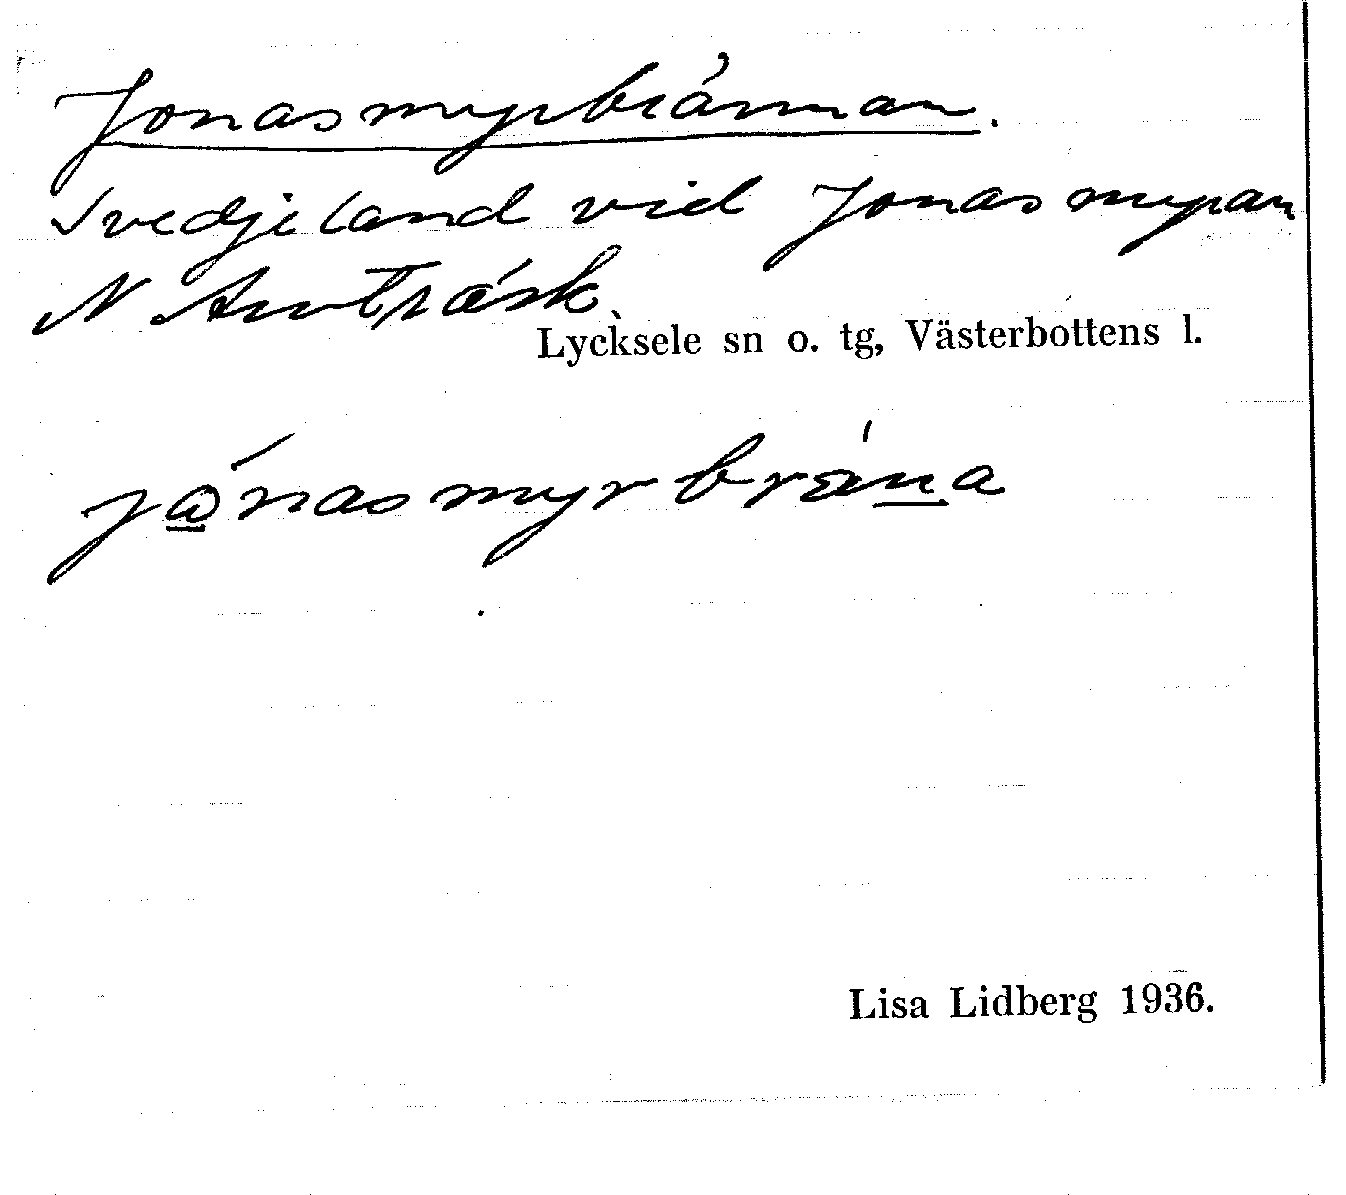 Jonasmyrbrännan.
Svedjeland vid Jonasmyran
N Auträsk
Lycksele sn o. tg, Västerbottens l.
jo̲nasmyrbrän̲a
Lisa Lidberg 1936.